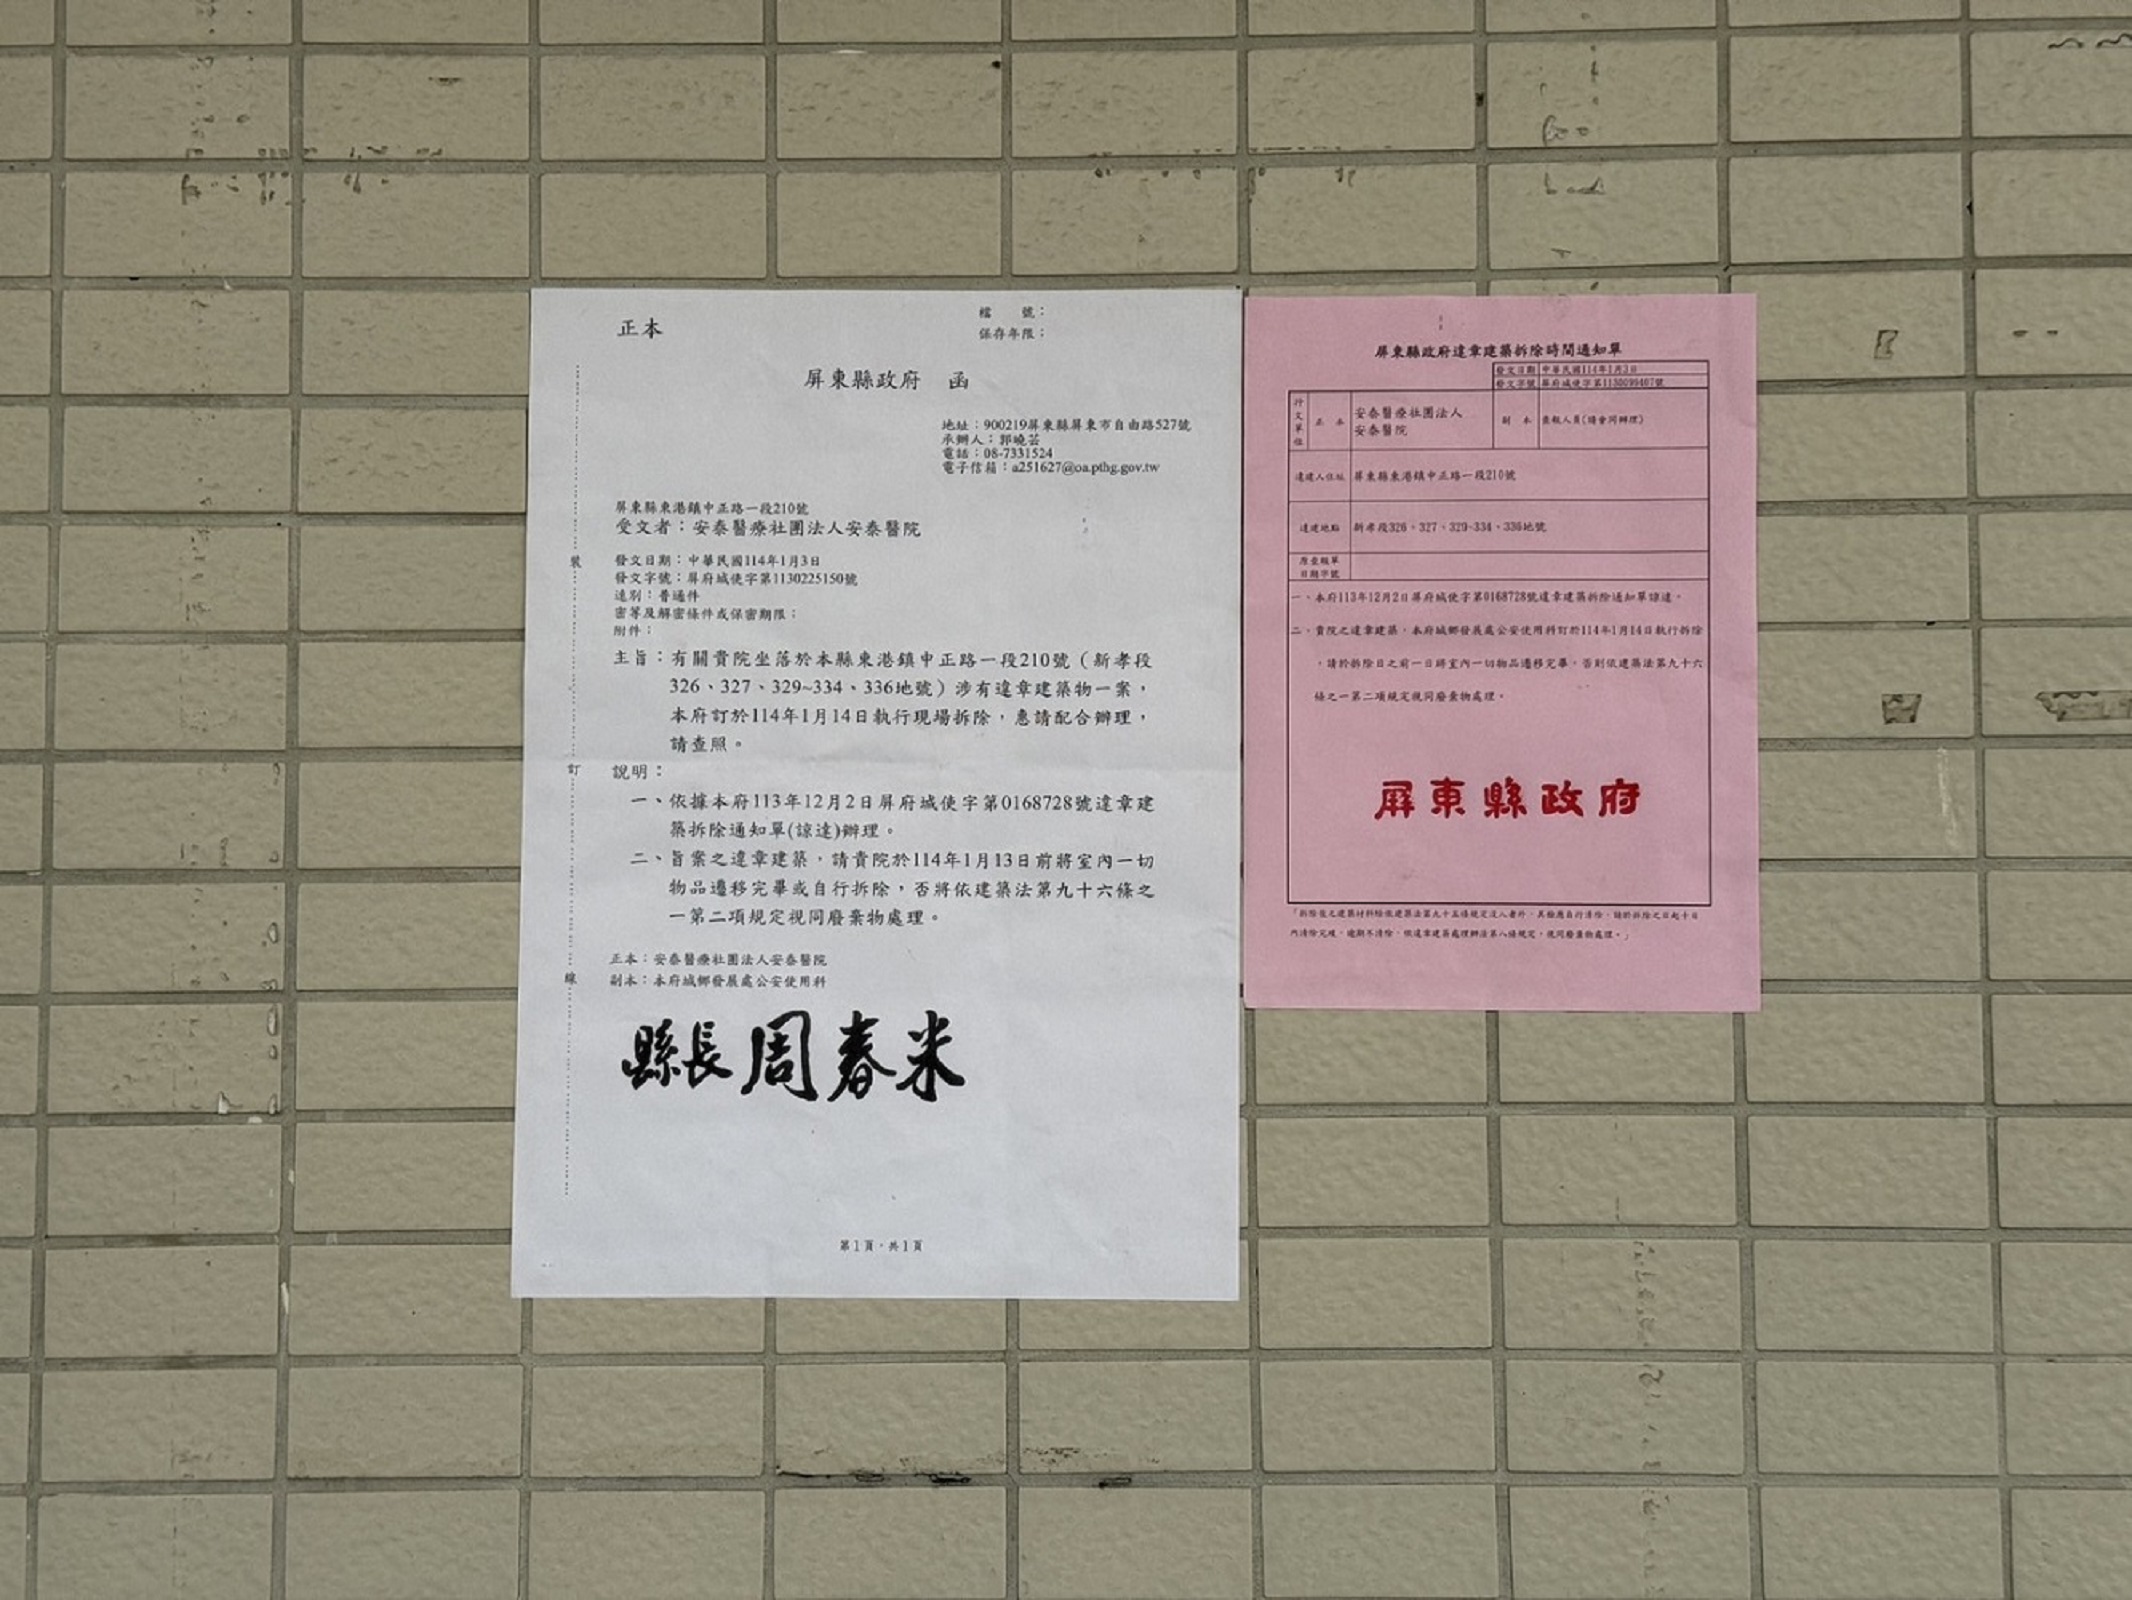 正本
檔　　號：
保存年限：
屏東縣政府　函
地址：900219屏東縣屏東市自由路527號
承辦人：郭曉芸
電話：08-7331524
電子信箱：a251627@oa.pthg.gov.tw
屏東縣東港鎮中正路一段210號
受文者：安泰醫療社團法人安泰醫院
發文日期：中華民國114年1月3日
發文字號：屏府城使字第1130225150號
速別：普通件
密等及解密條件或保密期限：
附件：
主旨：有關貴院坐落於本縣東港鎮中正路一段210號（新孝段
326、327、329~334、336地號）涉有違章建築物一案，
本府訂於114年1月14日執行現場拆除，惠請配合辦理，
請查照。
說明：
一、依據本府113年12月2日屏府城使字第0168728號違章建
築拆除通知單(諒達)辦理。
二、旨案之違章建築，請貴院於114年1月13日前將室內一切
物品遷移完畢或自行拆除，否將依建築法第九十六條之
一第二項規定視同廢棄物處理。
正本：安泰醫療社團法人安泰醫院
副本：本府城鄉發展處公安使用科
縣長周春米
第1頁，共1頁
裝
訂
線
屏東縣政府違章建築拆除時間通知單
發文日期 中華民國114年1月3日
發文字號 屏府城使字第1130099407號
行文單位 正本 安泰醫療社團法人
安泰醫院 副本 查報人員(請會同辦理)
違建人住址 屏東縣東港鎮中正路一段210號
違建地點 新孝段326、327、329~334、336地號
原查報單
日期字號
一、本府113年12月2日屏府城使字第0168728號違章建築拆除通知單諒達。
二、貴院之違章建築，本府城鄉發展處公安使用科訂於114年1月14日執行拆除
，請於拆除日之前一日將室內一切物品遷移完畢，否則依建築法第九十六
條之一第二項規定視同廢棄物處理。
屏東縣政府
「拆除後之建築材料除依建築法第九十五條規定沒入者外，其餘應自行清除，請於拆除之日起十日
內清除完竣，逾期不清除，依違章建築處理辦法第八條規定，視同廢棄物處理。」